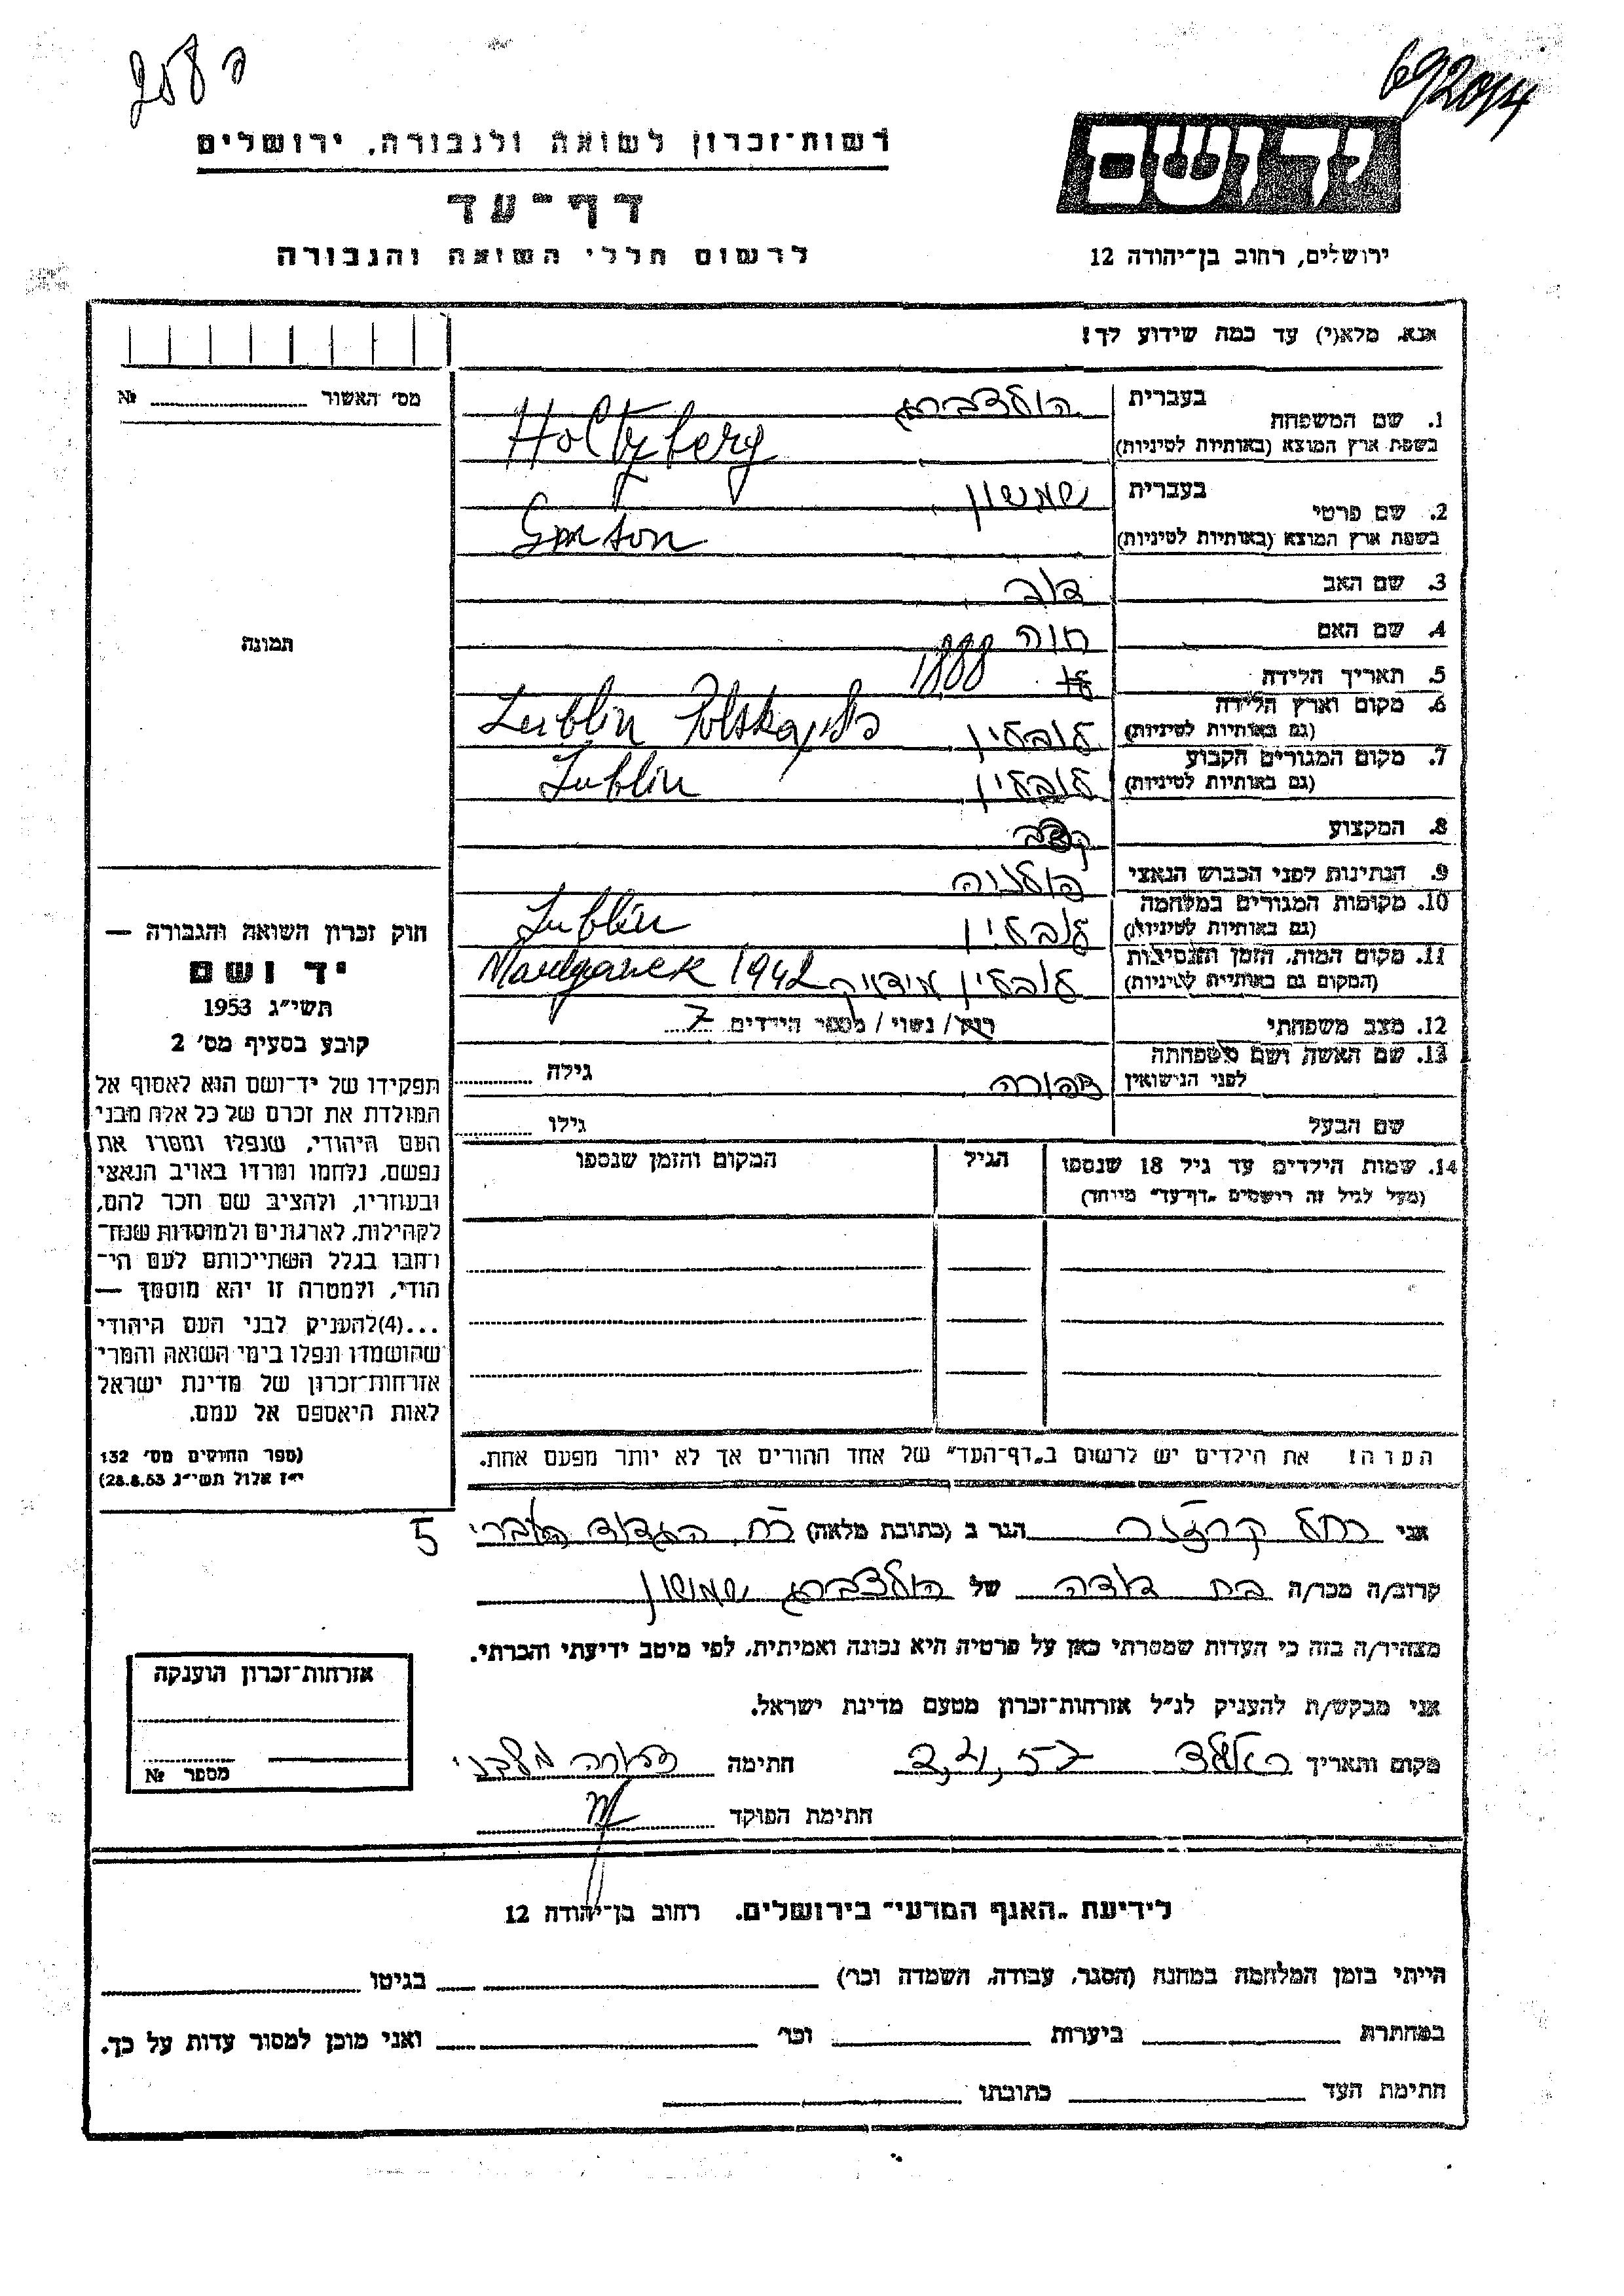 208 ה
692014
רשות־זכרון לשואה ולגבורה, ירושלים
דף־עד
לרשום חללי השואה והגבורה
יד ושם
ירושלים, רחוב בן־יהודה 12
אנא, מלא(י) עד כמה שידוע לך!
מס׳ האשור № 
1. שם המשפחה בעברית הולצברג
בשפת ארץ המוצא (באותיות לטיניות) Holtzberg
2. שם פרטי בעברית שמשון
בשפת ארץ המוצא (באותיות לטיניות)
3. שם האב דוב
4. שם האם חוה
5. תאריך הלידה 1888
6. מקום וארץ הלידה
(גם באותיות לטיניות) לובלין Lublin Polska
7. מקום המגורים הקבוע
(גם באותיות לטיניות) לובלין Lublin
8. המקצוע
9. הנתינות לפני הכבוש הנאצי פולניה
10. מקומות המגורים במלחמה
(גם באותיות לטיניות) לובלין Lublin
11. מקום המות, הזמן והנסיבות
(המקום גם באותיות לטיניות) לובלין מידניק 1942
12. מצב משפחתי רווק / נשוי / מספר הילדים 7
13. שם האשה ושם משפחתה
לפני הנישואין צפורה גילה
שם הבעל גילו
14. שמות הילדים עד גיל 18 שנספו הגיל המקום והזמן שנספו
(מעל לגיל זה רושמים „דף־עד״ מיוחד)
הערה: את הילדים יש לרשום ב„דף־העד״ של אחד ההורים אך לא יותר מפעם אחת.
תמונה
חוק זכרון השואה והגבורה —
יד ושם
תשי״ג 1953
קובע בסעיף מס׳ 2
תפקידו של יד־ושם הוא לאסוף אל
המולדת את זכרם של כל אלה מבני
העם היהודי, שנפלו ומסרו את
נפשם, נלחמו ומרדו באויב הנאצי
ובעוזריו, ולהציב שם וזכר להם,
לקהילות, לארגונים ולמוסדות שנח־
רבו בגלל השתייכותם לעם הי־
הודי, ולמטרה זו יהא מוסמך —
...(4)להעניק לבני העם היהודי
שהושמדו ונפלו בימי השואה והמרי
אזרחות־זכרון של מדינת ישראל
לאות היאספם אל עמם.
(ספר החוקים מס׳ 132
י״ז אלול תשי״ג 28.8.53)
אני רחל הגר ב (כתובת מלאה) רח׳ הגדוד העברי 5
קרוב/ה מכר/ה בת דודה של הולצברג שמשון
מצהיר/ה בזה כי העדות שמסרתי כאן על פרטיה היא נכונה ואמיתית, לפי מיטב ידיעתי והכרתי.
אני מבקש/ת להעניק לנ״ל אזרחות־זכרון מטעם מדינת ישראל.
מקום ותאריך חתימה
חתימת הפוקד
אזרחות־זכרון הוענקה
מספר №
לידיעת „האגף המדעי״ בירושלים, רחוב בן־יהודה 12
הייתי בזמן המלחמה במחנה (הסגר, עבודה, השמדה וכר׳) בגיטו
במחתרת ביערות וכר׳ ואני מוכן למסור עדות על כך.
חתימת העד כתובתו